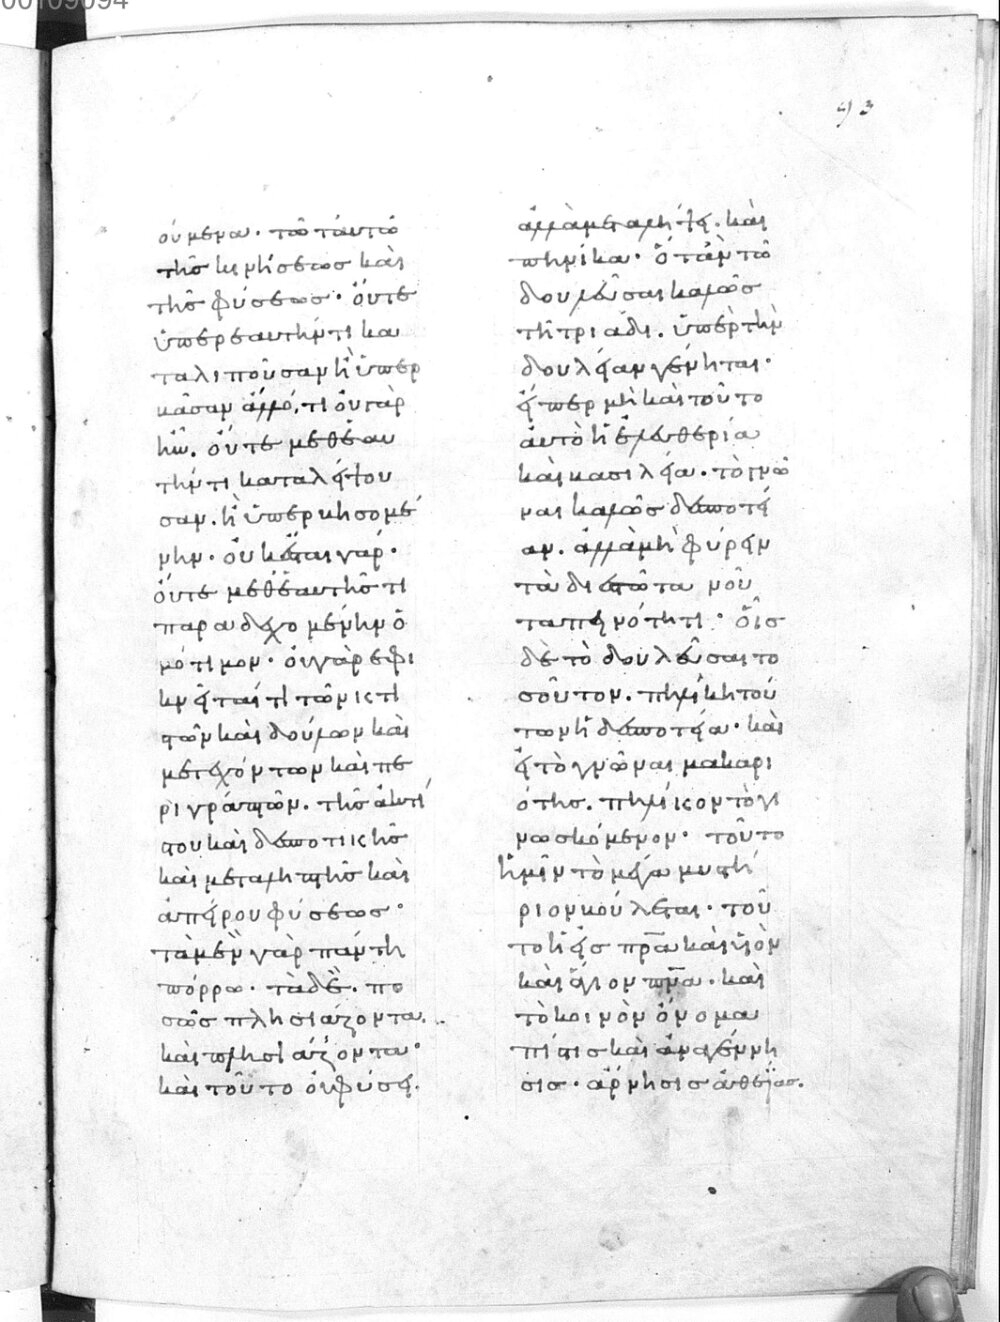 00109094
93
ούμενα· τῶ ταυτῶ
τῆς κινήσεως καὶ
τῆς φύσεως· οὔτε
ὑπερεαυτήν τι κα
ταλιποῦσαν ἢ ὑπερ
βᾶσαν ἄλλό, τι οὐ γὰρ
ἦν. οὔτε μεθέαυ
τήν τι καταλείψου
σαν. ἢ ὑπερβησομέ
νην· οὐκ ἔσται γάρ·
οὔτε μεθἑαυτῆς τι
παραδεχομένην ὁ
μότιμον· οὐ γὰρ εφι
κνεῖται τὶ τῶν κτι
στῶν καὶ δούλων καὶ
μετεχόντων καὶ πε
ριγράπτων. τῆς ἀκτί
στου καὶ δεσποτικῆς
καὶ μεταληπτῆς καὶ
ἀπείρου φύσεως·
τὰ μὲν γὰρ πάντη
πόρρω· τὰ δὲ. πο
σῶς πλησιάζοντα.
καὶ πλησιάζοντα·
καὶ τοῦτο οὐ φύσει.
ἀλλὰ μεταλήψει. καὶ
πηνίκα· ὅταν τῶ
δουλεῦσαι καλῶς
τῆ τριάδι. ὑπὲρ τὴν
δουλείαν γένηται·
εἴπερ μὴ καὶ τοῦτο
αυτὸ ἡ ἐλευθερία
καὶ βασιλεία· τὸ γνῶ
ναι καλῶς δεσποτεί
αν. ἀλλὰ μὴ φύρειν
τὰ διεστῶτα νοῦ
ταπεινότητι· οἷς
δὲ τὸ δουλεῦσαι το
σοῦτον. πηλίκη τού
των ἡ δεσποτεία· καὶ
εἰ τὸ γνῶναι μακαρι
ότης. πηλίκον τὸ γι
νωσκόμενον· τοῦτο
ἡμῖν τὸ μέγα μυστή
ριον βούλεται· τοῦ
το ἡ εἰς πρα καὶ υἱὸν
καὶ ἅγιον πνα· καὶ
τὸ κοινὸν όνομα
πίστις καὶ ἀναγέννη
σις· ἄρνησις ἀθεΐας.